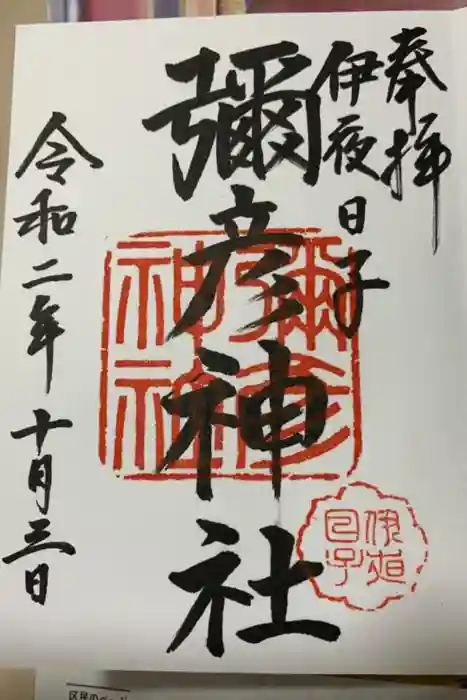 奉拝
伊夜日子
彌彦神社
令和二年十月三日
彌彦神社
伊夜日子